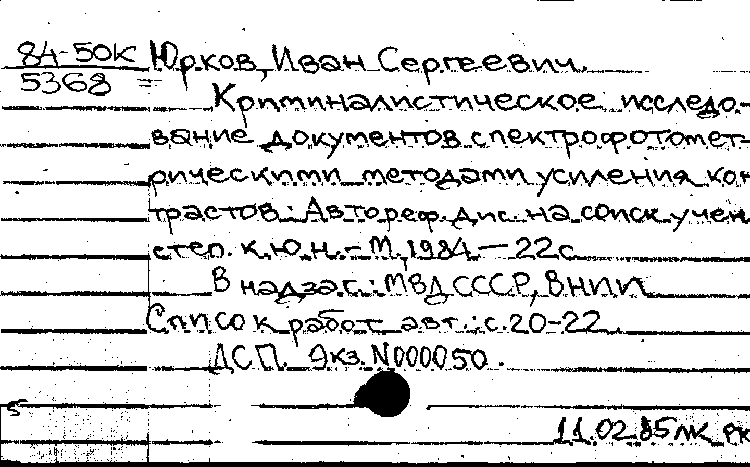 84-50к Юрков, Иван Сергеевич.
5368 =
Криминалистическое исследо-
вание документов спектрофотомет-
рическими методами усиления кон
трастов: Автореф. дис. на соиск. учен
степ. к.ю.н. - М, 1984 - 22 с
В надзаг.: МВД СССР, ВНИИ
Список работ авт.: с. 20-22
ДСП. Экз. N000050.
5
11.02.85 мк рк